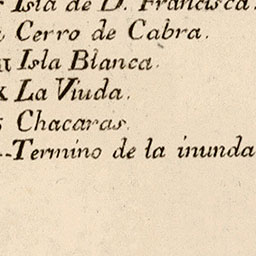 Isla de D. Francisca.
Cerro de Cabra.
Isla Blanca.
La Viuda.
Chacaras.
--Termino de la inunda